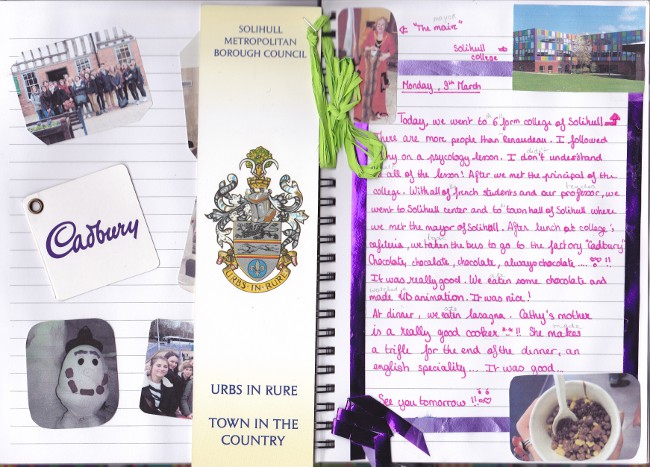 SOLIHULL
METROPOLITAN
BOROUGH COUNCIL
URBS·IN·RURE
URBS IN RURE
TOWN IN THE
COUNTRY
Cadbury
"The maire"
mayor
Solihull
college
Monday, 9th March
Today, we went to 6th form college of Solihull
There are more people than Renaudeau. I followed
on a psycology lesson. I don't understand
all of the lesson! After we met the principal of the
college. With all of french students and our professor, we
went to Solihull center and to town hall of Solihull where
we met the mayor of Solihull. After lunch at college's
cafeteria, we taken the bus to go to the factory "Cadbury"
Chocolate, chocolate, chocolate, always chocolate....
It was really good. We eaten some chocolate and
made animation. It was nice!
At dinner, we eaten lasagna. Cathy's mother
is a really good cooker !! She makes
made
a trifle for the end of the dinner, an
english speciality... It was good...
See you tomorrow !!